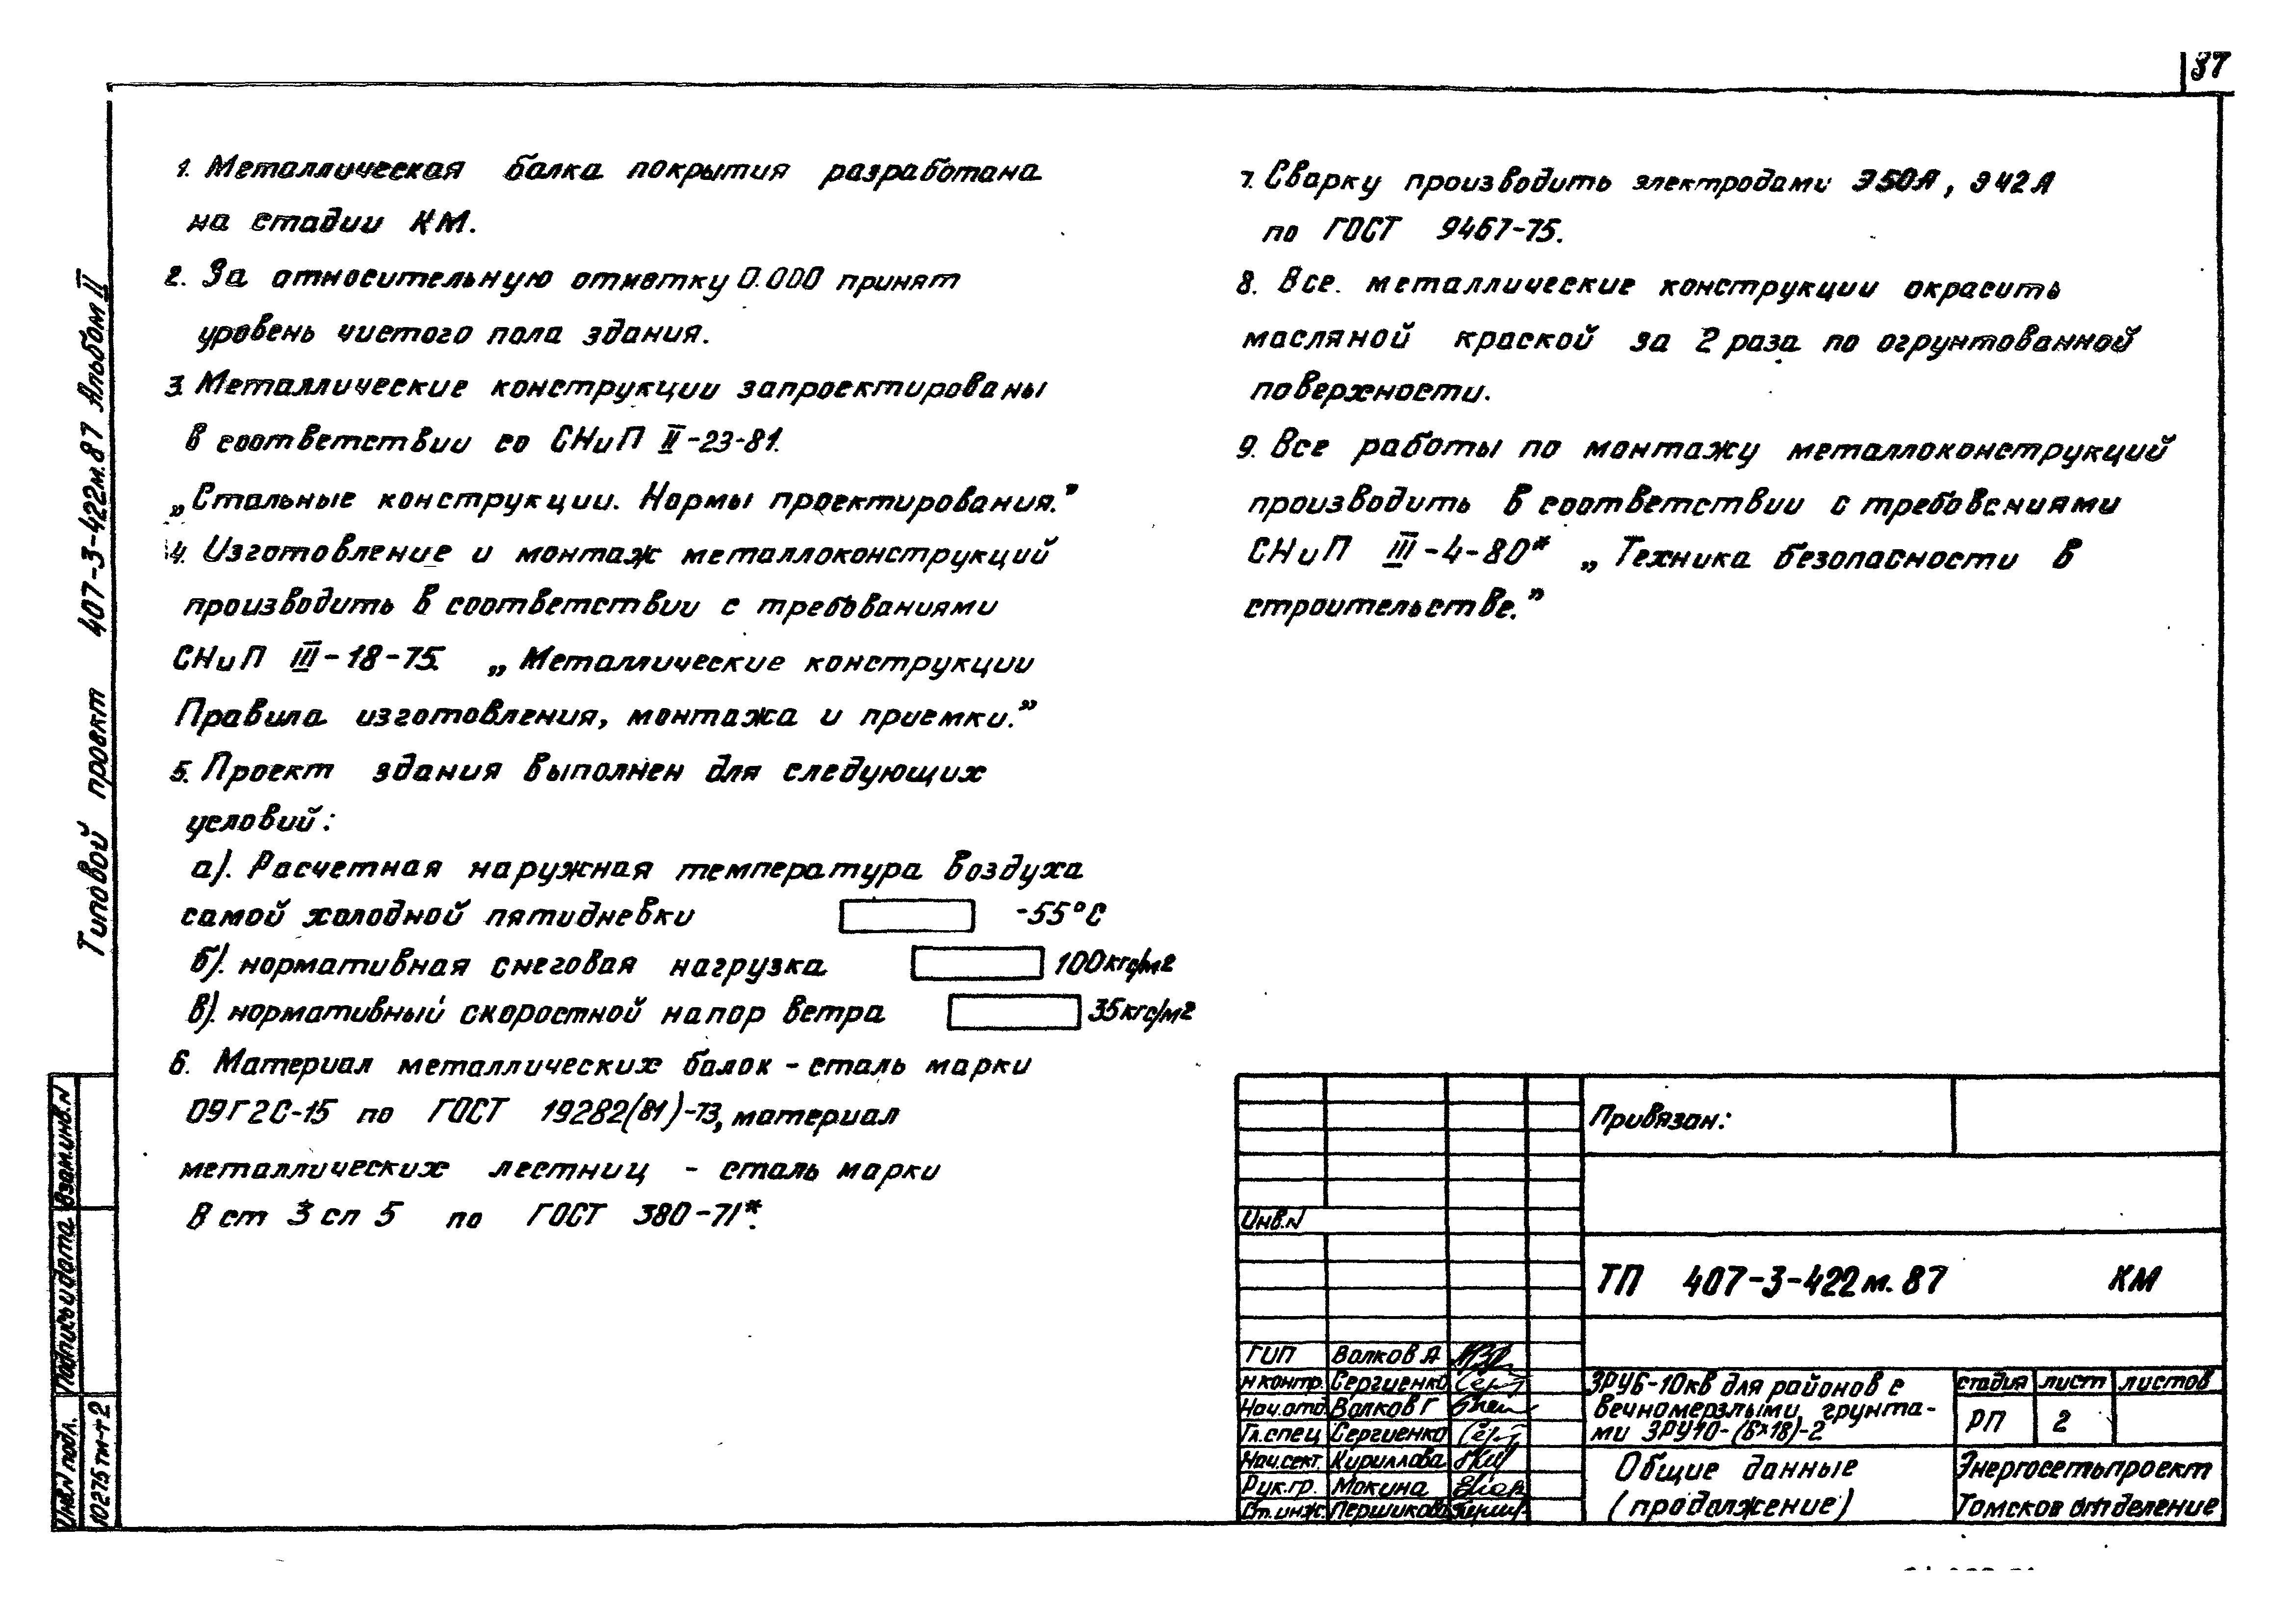 37
1. Металлическая балка покрытия разработана
на стадии КМ.
2. За относительную отметку 0.000 принят
уровень чистого пола здания.
3. Металлические конструкции запроектированы
в соответствии со СНиП II-23-81.
„Стальные конструкции. Нормы проектирования.”
4. Изготовление и монтаж металлоконструкций
производить в соответствии с требованиями
СНиП III-18-75. „Металлические конструкции
Правила изготовления, монтажа и приемки.”
5. Проект здания выполнен для следующих
условий:
а). Расчетная наружная температура воздуха
самой холодной пятидневки -55°С
б). нормативная снеговая нагрузка 100кгс/м2
в). нормативный скоростной напор ветра 35кгс/м2
6. Материал металлических балок - сталь марки
09Г2С-15 по ГОСТ 19282(81)-73, материал
металлических лестниц - сталь марки
В ст 3 сп 5 по ГОСТ 380-71*.
7. Сварку производить электродами Э50А, Э42А
по ГОСТ 9467-75.
8. Все. металлические конструкции окрасить
масляной краской за 2 раза по огрунтованной
поверхности.
9. Все работы по монтажу металлоконструкций
производить в соответствии с требованиями
СНиП III-4-80* „Техника безопасности в
строительстве.”
Типовой проект 407-3-422м.87 Альбом II
Взам.инв.N
Подпись и дата
Инв.N подл.
10275тм-т2
Привязан:
Инв.N
ТП 407-3-422м.87 КМ
ГИП Волков А
Н контр. Сергиенко
Нач.отд Волков Г
Гл.спец Сергиенко
Нач.сект. Кириллова
Рук.гр. Мокина
Ст.инж. Першикова
ЗРУБ-10кВ для районов с
вечномерзлыми грунта-
ми ЗРУ10-(6×18)-2
стадия лист листов
РП 2
Общие данные
(продолжение)
Энергосетьпроект
Томсков отделение